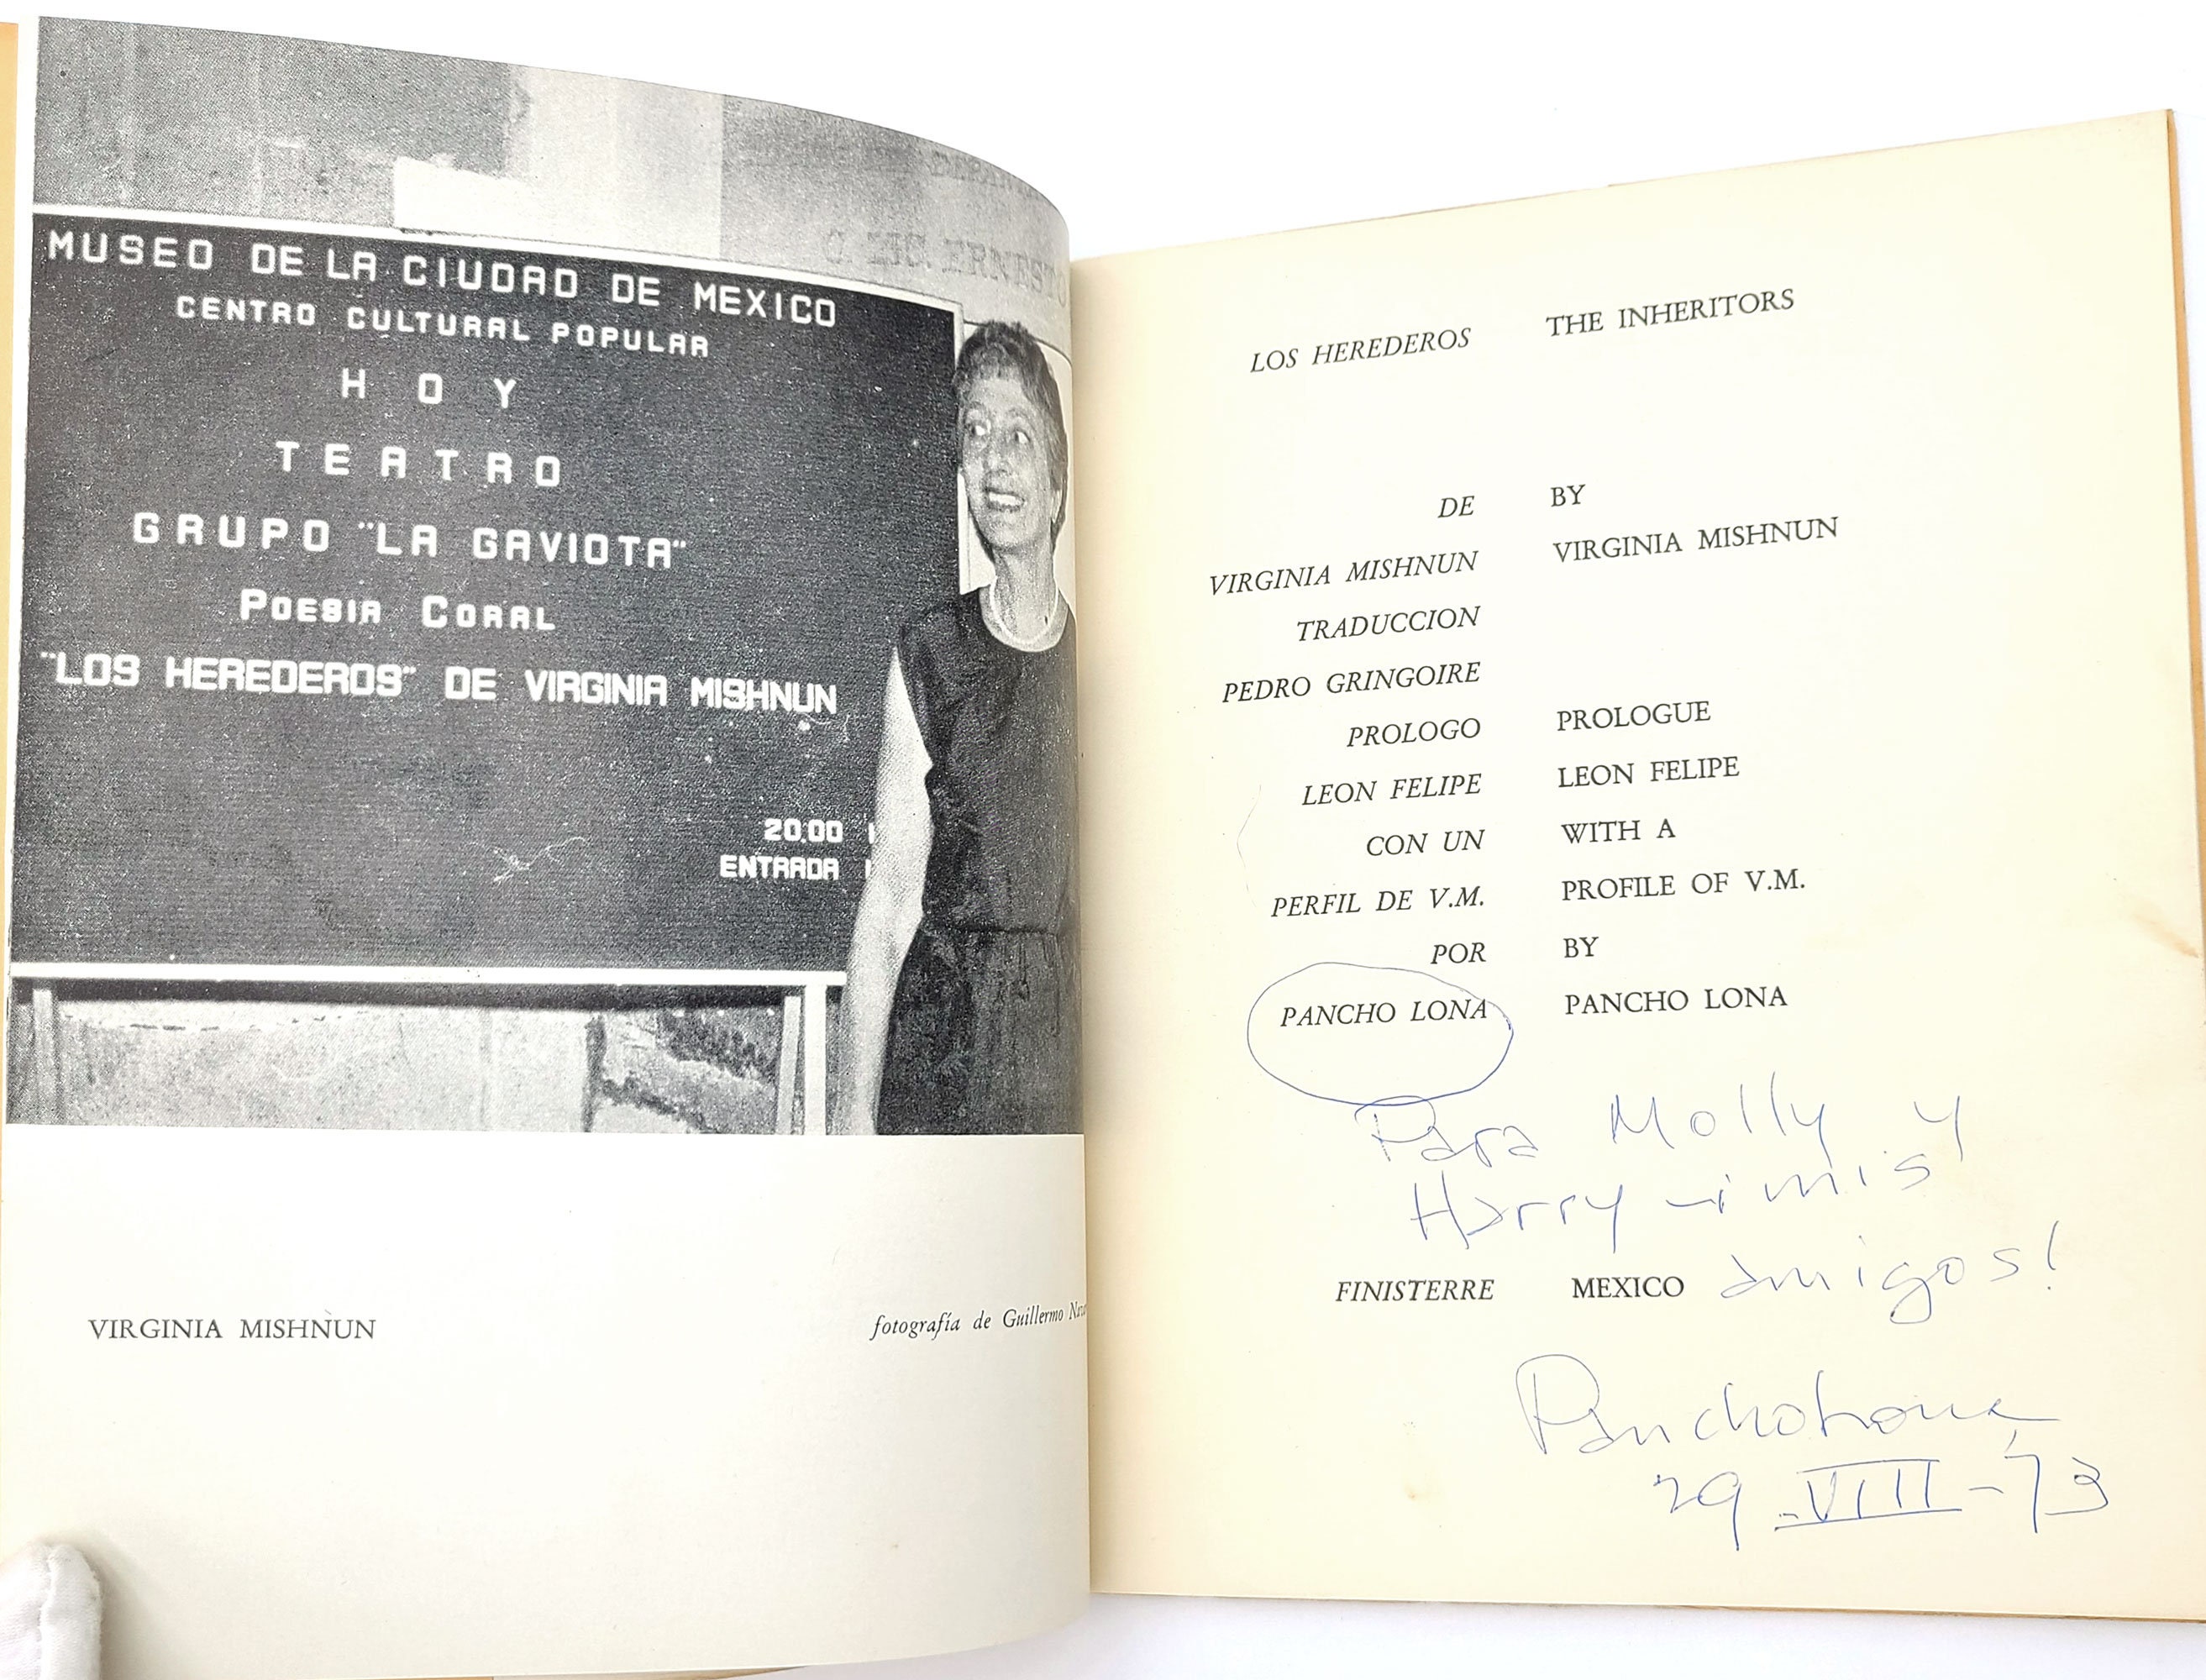 C. LIC. ERNESTO
MUSEO DE LA CIUDAD DE MEXICO
CENTRO CULTURAL POPULAR
HOY
TEATRO
GRUPO "LA GAVIOTA"
POESIA CORAL
"LOS HEREDEROS" DE VIRGINIA MISHNUN
20.00
ENTRADA
VIRGINIA MISHNUN
fotografía de Guillermo
LOS HEREDEROS THE INHERITORS
DE BY
VIRGINIA MISHNUN VIRGINIA MISHNUN
TRADUCCION
PEDRO GRINGOIRE
PROLOGO PROLOGUE
LEON FELIPE LEON FELIPE
CON UN WITH A
PERFIL DE V.M. PROFILE OF V.M.
POR BY
PANCHO LONA PANCHO LONA
Para Molly y
Harry mis
amigos!
FINISTERRE MEXICO
Pancho Lona
29-VIII-73